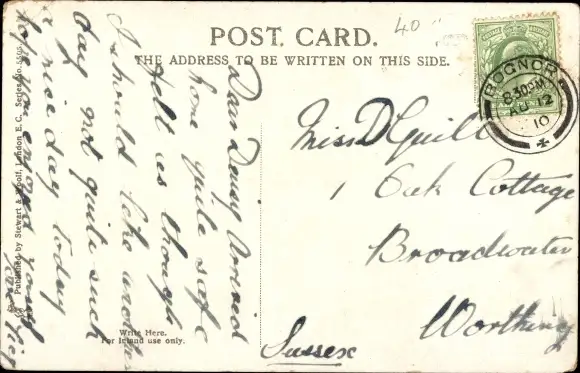 40
POST CARD.
THE ADDRESS TO BE WRITTEN ON THIS SIDE.
BOGNOR
8.30PM
AU 12
10
Miss D Guill
1 Oak Cottage
Broadwater
Worthing
Sussex
Dear Daisy Arrived
home quite safe
felt as though
I should like another
day not quite such
a nice day today
hope you enjoyed yourself
Write Here.
For Inland use only.
Published by Stewart & Woolf, London E.C. Series No.